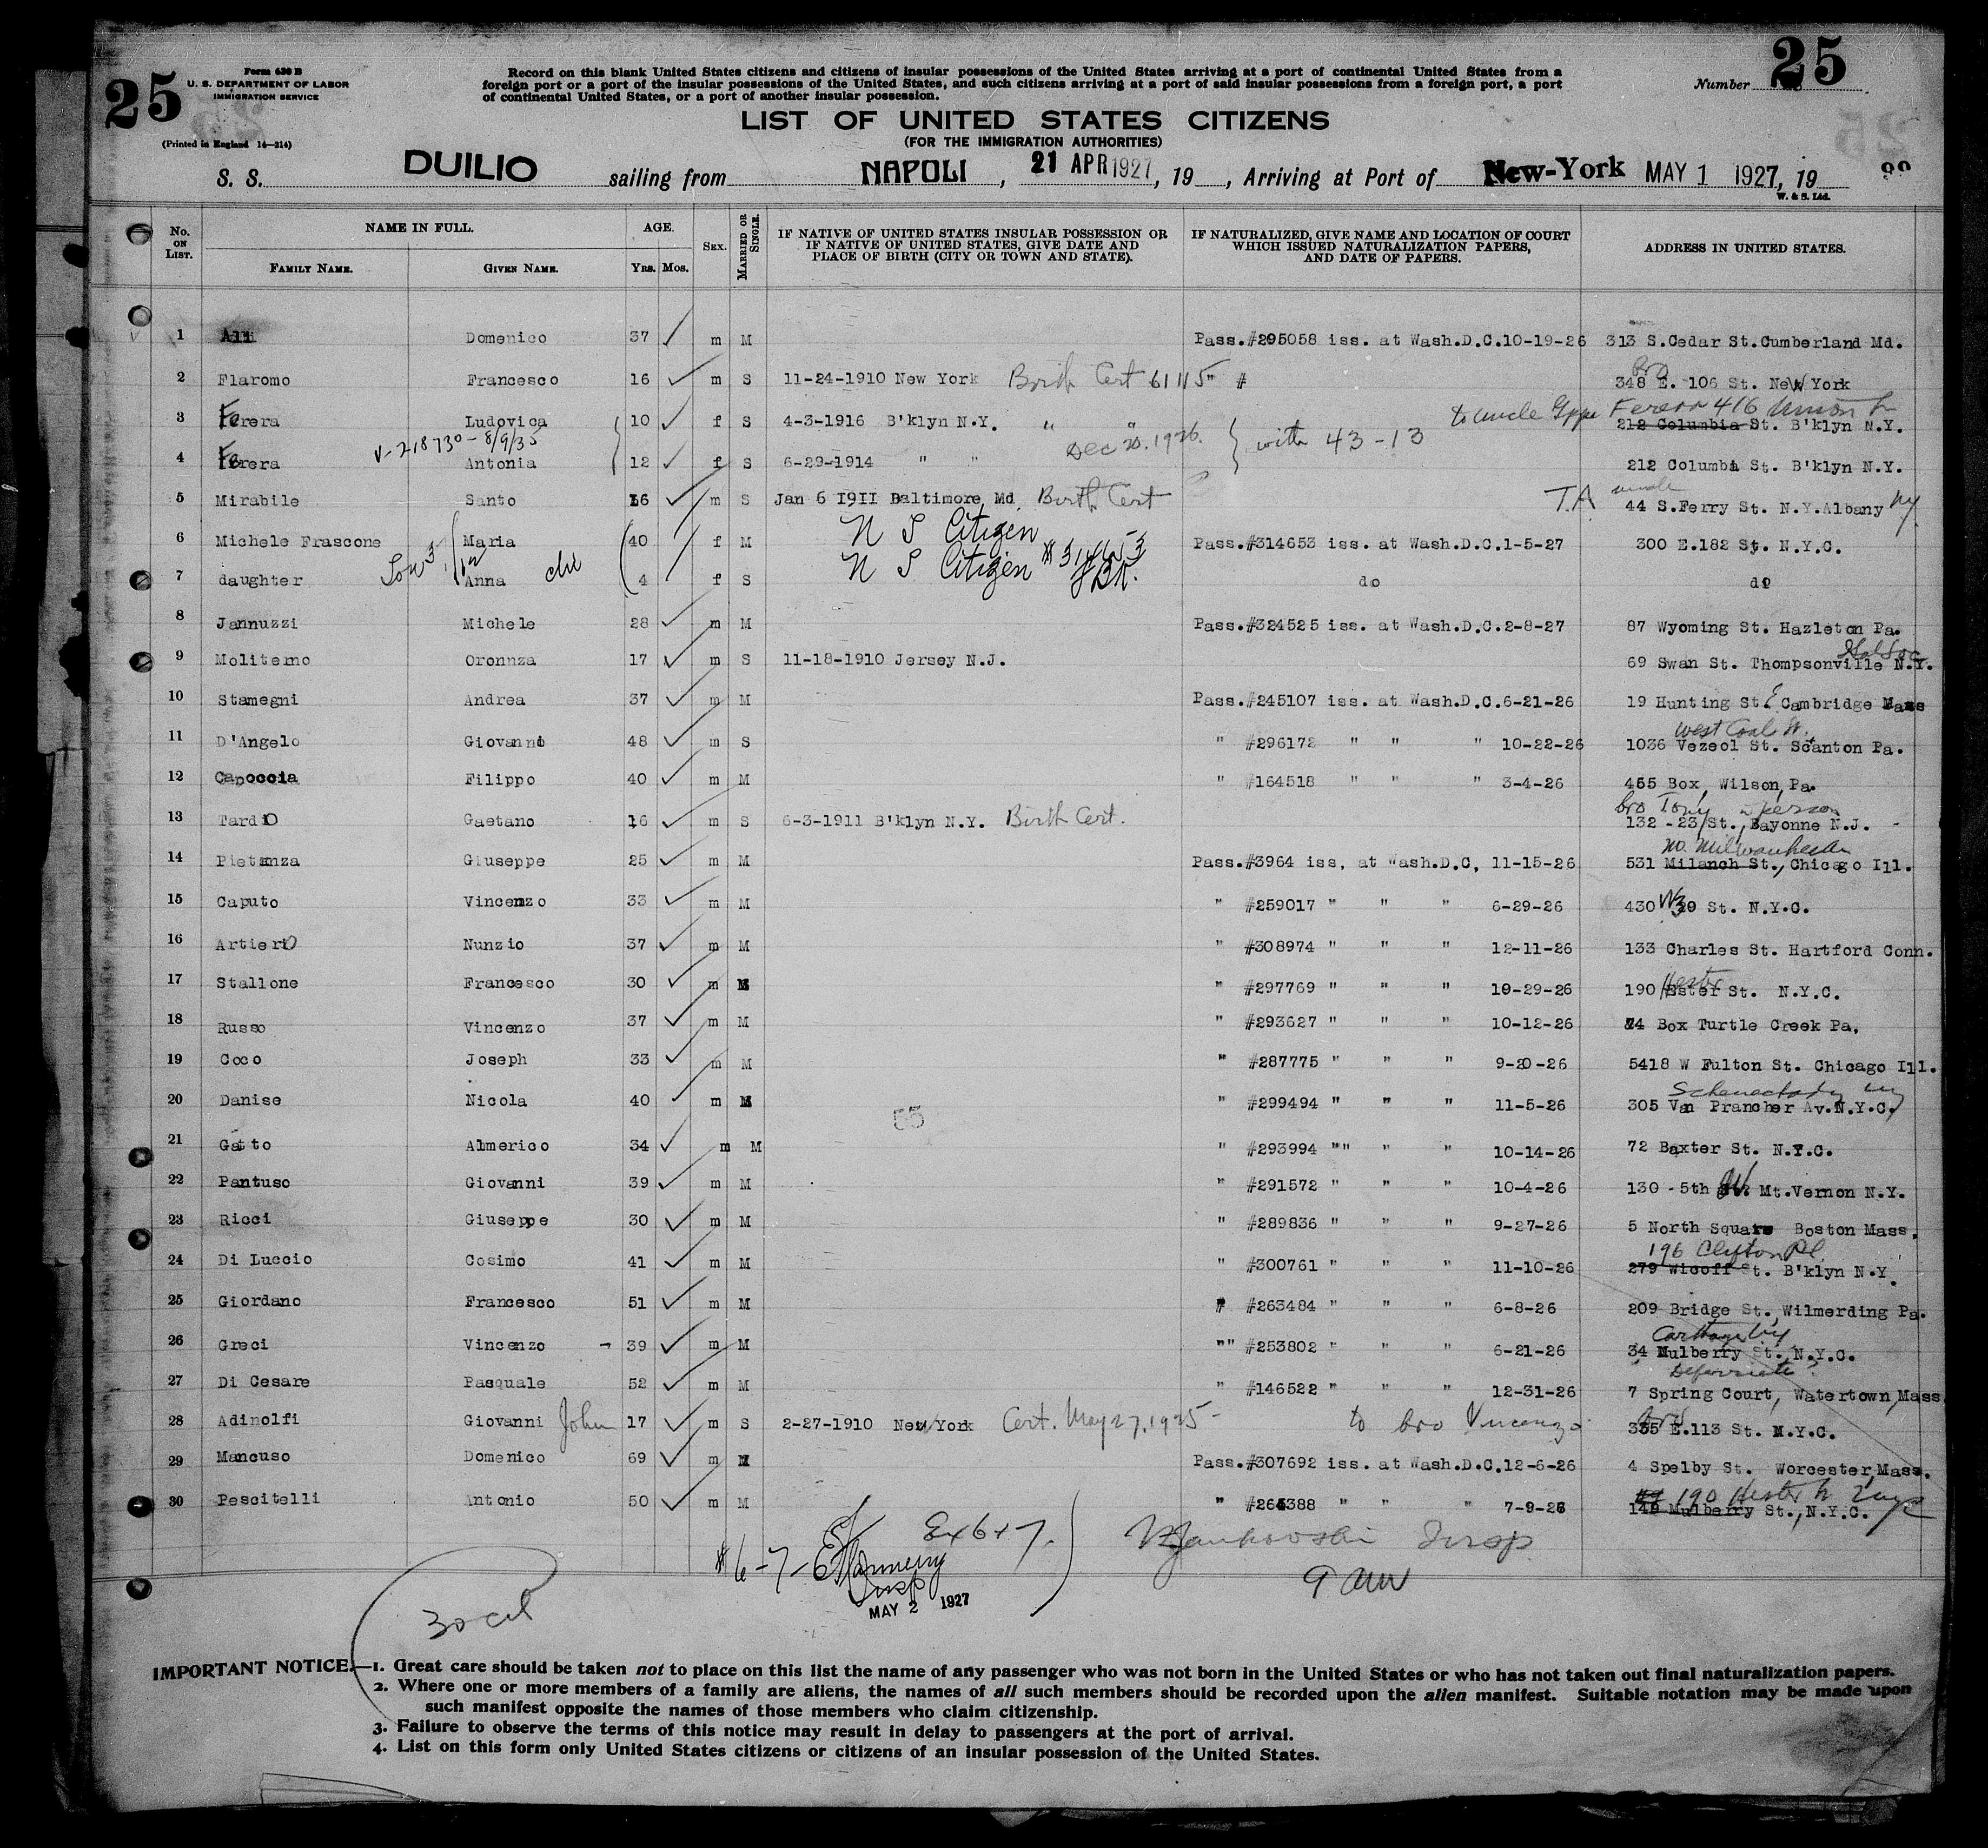 25
Form 630 B
U. S. DEPARTMENT OF LABOR
IMMIGRATION SERVICE
(Printed in England 14—214)
Record on this blank United States citizens and citizens of insular possessions of the United States arriving at a port of continental United States from a
foreign port or a port of the insular possessions of the United States, and such citizens arriving at a port of said insular possessions from a foreign port, a port
of continental United States, or a port of another insular possession.
Number 25
LIST OF UNITED STATES CITIZENS
(FOR THE IMMIGRATION AUTHORITIES)
S. S. DUILIO sailing from NAPOLI, 21 APR 1927, 19 , Arriving at Port of New-York MAY 1 1927, 19
W. & S. Ltd.
No. ON LIST. NAME IN FULL. FAMILY NAME. GIVEN NAME. AGE. YRS. MOS. SEX. MARRIED OR SINGLE. IF NATIVE OF UNITED STATES INSULAR POSSESSION OR IF NATIVE OF UNITED STATES, GIVE DATE AND PLACE OF BIRTH (CITY OR TOWN AND STATE). IF NATURALIZED, GIVE NAME AND LOCATION OF COURT WHICH ISSUED NATURALIZATION PAPERS, AND DATE OF PAPERS. ADDRESS IN UNITED STATES.
1 Ali Domenico 37 m M Pass.#295058 iss. at Wash.D.C.10-19-26 313 S.Cedar St.Cumberland Md.
bro
2 Flaromo Francesco 16 m S 11-24-1910 New York Birth Cert 61115 " # 348 E. 106 St. New York
to uncle Gppe Ferera 416 Union
3 Ferera Ludovica 10 f S 4-3-1916 B'klyn N.Y. " " 212 Columbia St. B'klyn N.Y.
V-218730 - 8/9/35 Dec 20. 1926. with 43-13
4 Ferera Antonia 12 f S 6-29-1914 " " 212 Columbia St. B'klyn N.Y.
uncle
5 Mirabile Santo 16 m S Jan 6 1911 Baltimore Md Birth Cert T.A 44 S.Ferry St. N.Y.Albany ny
6 Michele Frascone Maria 40 f M U S Citizen Pass.#314653 iss. at Wash.D.C.1-5-27 300 E.182 St. N.Y.C.
7 daughter Anna 4 f S U S Citizen #314653 do do
8 Jannuzzi Michele 28 m M Pass.#324525 iss. at Wash.D.C.2-8-27 87 Wyoming St. Hazleton Pa.
9 Moliterno Oronnza 17 m S 11-18-1910 Jersey N.J. 69 Swan St. Thompsonville N.Y.
10 Stamegni Andrea 37 m M Pass.#245107 iss. at Wash.D.C.6-21-26 19 Hunting St. E Cambridge Mass
West Coal St.
11 D'Angelo Giovanni 48 m S " #296172 " " " 10-22-26 1036 Vezeol St. Scanton Pa.
12 Capoccia Filippo 40 m M " #164518 " " " 3-4-26 455 Box, Wilson,Pa.
bro Tony
13 Tardio Gaetano 16 m S 6-3-1911 B'klyn N.Y. Birth Cert. 132 -23/St., Bayonne N.J.
no.
14 Pietanza Giuseppe 25 m M Pass.#3964 iss, at Wash.D.C, 11-15-26 531 Milanch St., Chicago Ill.
15 Caputo Vincenzo 33 m M " #259017 " " " 6-29-26 430 W 39 St. N.Y.C.
16 Artierio Nunzio 37 m M " #308974 " " " 12-11-26 133 Charles St. Hartford Conn.
Hester
17 Stallone Francesco 30 m M " #297769 " " " 10-29-26 190 Ester St. N.Y.C.
18 Russo Vincenzo 37 m M " #293627 " " " 10-12-26 74 Box Turtle Creek Pa.
19 Coco Joseph 33 m M " #287775 " " " 9-20-26 5418 W Fulton St. Chicago Ill.
Schenectady ny
20 Danise Nicola 40 m M " #299494 " " " 11-5-26 305 Van Prancher Av.N.Y.C.
55
21 Gatto Almerico 34 m M " #293994 "" " " 10-14-26 72 Baxter St. N.Y.C.
22 Pantuso Giovanni 39 m M " #291572 " " " 10-4-26 130 -5th Av Mt.Vernon N.Y.
23 Ricci Giuseppe 30 m M " #289836 " " " 9-27-26 5 North Square Boston Mass.
196 Clifton Pl.
24 Di Luccio Cosimo 41 m M " #300761 " " " 11-10-26 279 Wicoff St. B'klyn N.Y.
25 Giordano Francesco 51 m M " #263484 " " " 6-8-26 209 Bridge St, Wilmerding Pa.
Carthage ny
26 Greci Vincenzo - 39 m M "" #253802 " " " 6-21-26 34 Mulberry St. N.Y.C.
Deferriet
27 Di Cesare Pasquale 52 m M " #146522 " " " 12-31-26 7 Spring Court, Watertown,Mass
28 Adinolfi Giovanni John 17 m S 2-27-1910 New York Cert. May 27, 1925 - to bro Vincenzo 335 E.113 St. N.Y.C.
29 Mancuso Domenico 69 m M Pass.#307692 iss. at Wash.D.C.12-6-26 4 Spelby St. Worcester,Mass.
190 Hester
30 Pescitelli Antonio 50 m M " #264388 " " " 7-9-26 149 Mulberry St.,N.Y.C.
Ex 6+7.
#6-7- Insp
MAY 2 1927
Insp
30 cit
IMPORTANT NOTICE.—1. Great care should be taken not to place on this list the name of any passenger who was not born in the United States or who has not taken out final naturalization papers.
2. Where one or more members of a family are aliens, the names of all such members should be recorded upon the alien manifest. Suitable notation may be made upon
such manifest opposite the names of those members who claim citizenship.
3. Failure to observe the terms of this notice may result in delay to passengers at the port of arrival.
4. List on this form only United States citizens or citizens of an insular possession of the United States.